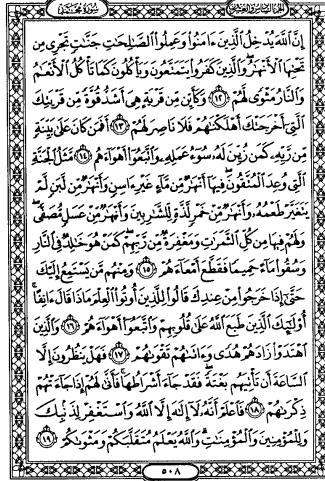 الجزء السادس والعشرون سورة محمد
إِنَّ اللَّهَ يُدْخِلُ الَّذِينَ ءَامَنُوا وَعَمِلُوا الصَّٰلِحَٰتِ جَنَّٰتٍ تَجْرِى مِن
تَحْتِهَا الْأَنْهَٰرُ وَالَّذِينَ كَفَرُوا يَتَمَتَّعُونَ وَيَأْكُلُونَ كَمَا تَأْكُلُ الْأَنْعَٰمُ
وَالنَّارُ مَثْوًى لَّهُمْ ١٢ وَكَأَيِّن مِّن قَرْيَةٍ هِىَ أَشَدُّ قُوَّةً مِّن قَرْيَتِكَ
الَّتِى أَخْرَجَتْكَ أَهْلَكْنَٰهُمْ فَلَا نَاصِرَ لَهُمْ ١٣ أَفَمَن كَانَ عَلَىٰ بَيِّنَةٍ
مِّن رَّبِّهِ كَمَن زُيِّنَ لَهُ سُوءُ عَمَلِهِ وَاتَّبَعُوا أَهْوَاءَهُم ١٤ مَّثَلُ الْجَنَّةِ
الَّتِى وُعِدَ الْمُتَّقُونَ فِيهَا أَنْهَٰرٌ مِّن مَّاءٍ غَيْرِ ءَاسِنٍ وَأَنْهَٰرٌ مِّن لَّبَنٍ لَّمْ
يَتَغَيَّرْ طَعْمُهُ وَأَنْهَٰرٌ مِّنْ خَمْرٍ لَّذَّةٍ لِّلشَّٰرِبِينَ وَأَنْهَٰرٌ مِّنْ عَسَلٍ مُّصَفًّى
وَلَهُمْ فِيهَا مِن كُلِّ الثَّمَرَٰتِ وَمَغْفِرَةٌ مِّن رَّبِّهِمْ كَمَنْ هُوَ خَٰلِدٌ فِى النَّارِ
وَسُقُوا مَاءً حَمِيمًا فَقَطَّعَ أَمْعَاءَهُمْ ١٥ وَمِنْهُم مَّن يَسْتَمِعُ إِلَيْكَ
حَتَّىٰ إِذَا خَرَجُوا مِنْ عِندِكَ قَالُوا لِلَّذِينَ أُوتُوا الْعِلْمَ مَاذَا قَالَ ءَانِفًا
أُولَٰئِكَ الَّذِينَ طَبَعَ اللَّهُ عَلَىٰ قُلُوبِهِمْ وَاتَّبَعُوا أَهْوَاءَهُمْ ١٦ وَالَّذِينَ
اهْتَدَوْا زَادَهُمْ هُدًى وَءَاتَىٰهُمْ تَقْوَىٰهُمْ ١٧ فَهَلْ يَنظُرُونَ إِلَّا
السَّاعَةَ أَن تَأْتِيَهُم بَغْتَةً فَقَدْ جَاءَ أَشْرَاطُهَا فَأَنَّىٰ لَهُمْ إِذَا جَاءَتْهُمْ
ذِكْرَىٰهُمْ ١٨ فَاعْلَمْ أَنَّهُ لَا إِلَٰهَ إِلَّا اللَّهُ وَاسْتَغْفِرْ لِذَنبِكَ
وَلِلْمُؤْمِنِينَ وَالْمُؤْمِنَٰتِ وَاللَّهُ يَعْلَمُ مُتَقَلَّبَكُمْ وَمَثْوَىٰكُمْ ١٩
٥٠٨